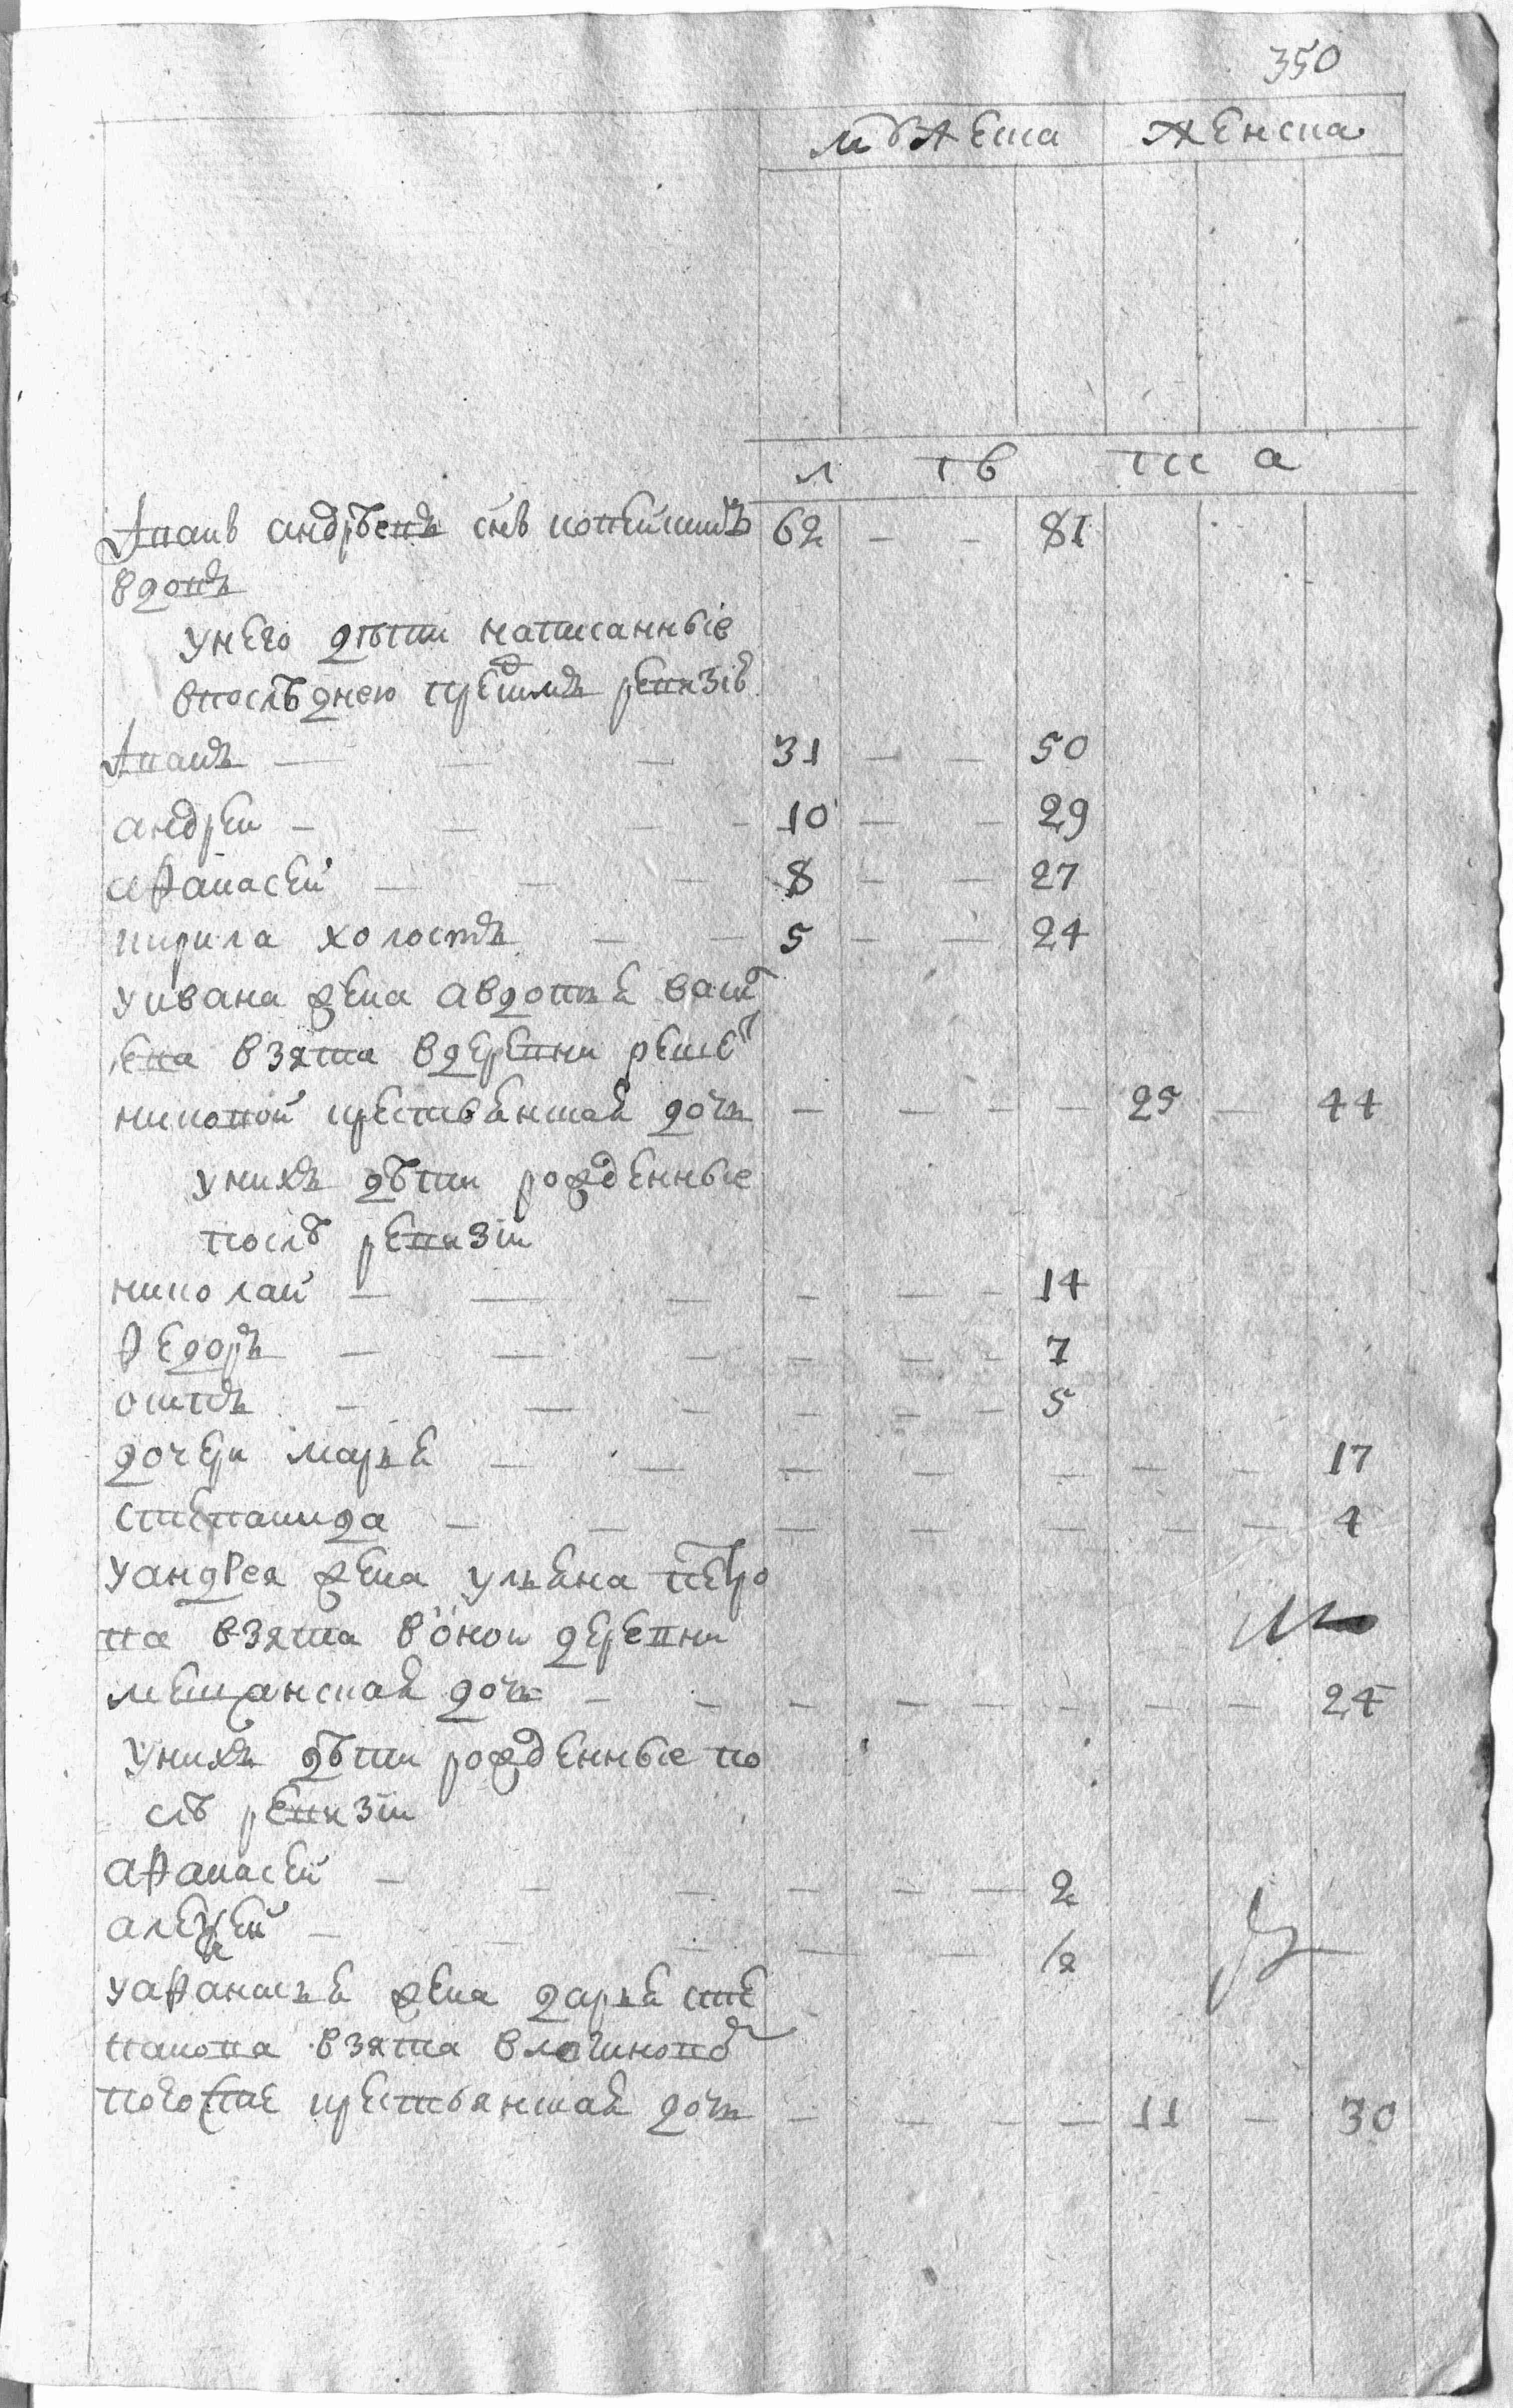 350
мѣжеска женска
л тъ ти а
Иванъ андрѣевъ снъ копейкинъ 62 — — 81
вдовъ
унего дѣти написанныie
впослѣднею пред ревизiю
Иванъ — — — 31 — — 50
андрей — — — — 10 — — 29
афанасей — — — 8 — — 27
кирила холостъ — — 5 — — 24
уивана жена авдотья васи
ева взята вдеревни реше
никовой крестьянская дочь — — — — 25 — 44
унихъ дѣти рожденные
послѣ ревизiи
николай — — — — — — 14
федоръ — — — — — — 7
осипъ — — — — — — 5
дочери марья — — — — — — — 17
степанида — — — — — — — 4
уандрея жена ульяна петро
ва взята вонои деревни
мещанская дочь — — — — — — — — 24
унихъ дѣти рожденные по
слѣ ревизiи
афанасей — — — — — — 2
алексей — — — — — 1/2
уафанасья жена дарья сте
панова взята в
погосте крестьянская дочь — — — — 11 — 30